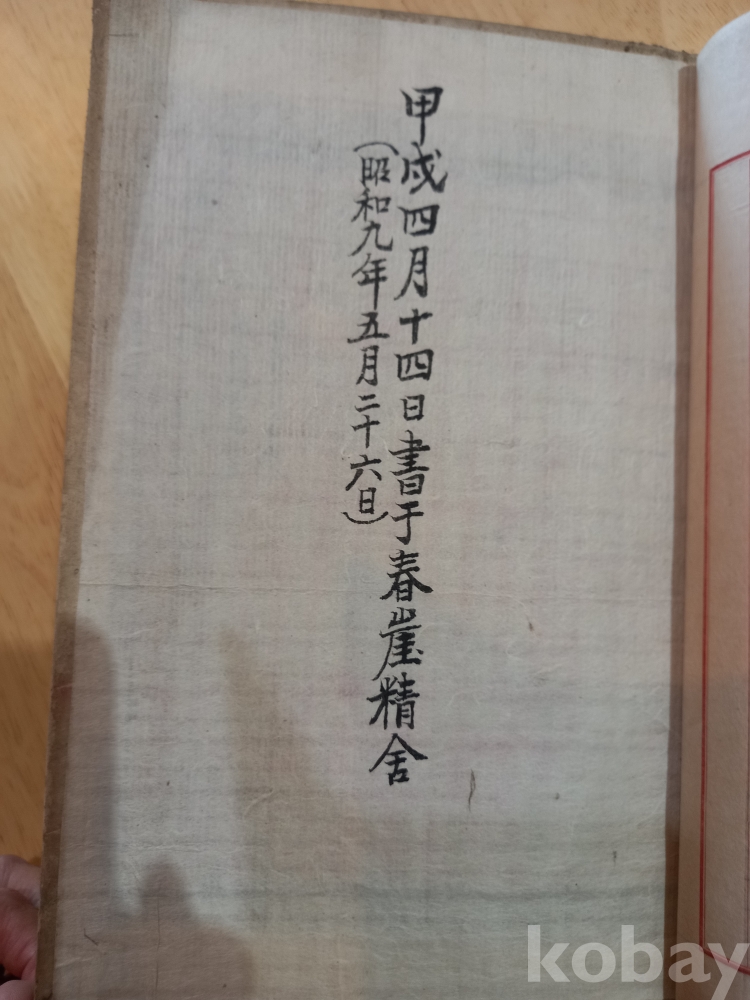 甲戌四月十四日書于春崖精舍
(昭和九年五月二十六日)
kobay